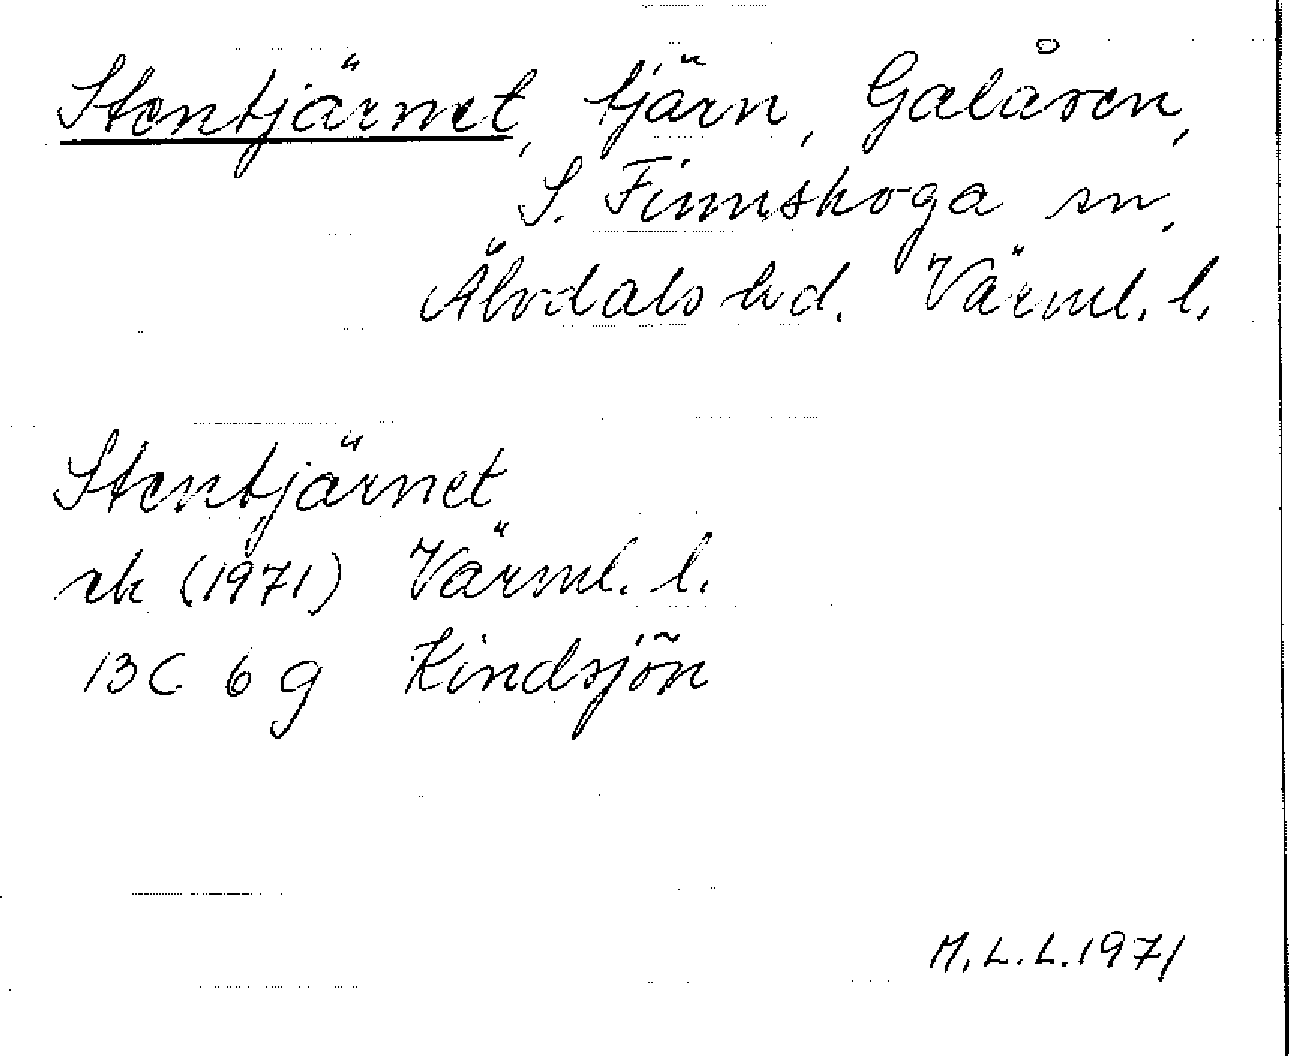 Stentjärnet, tjärn, Galåsen,
S. Finnskoga sn,
Älvdals hd. Värml. l.
Stentjärnet
ek (1971) Värml. l.
13C 6g Kindsjön
M.L.L. 1971